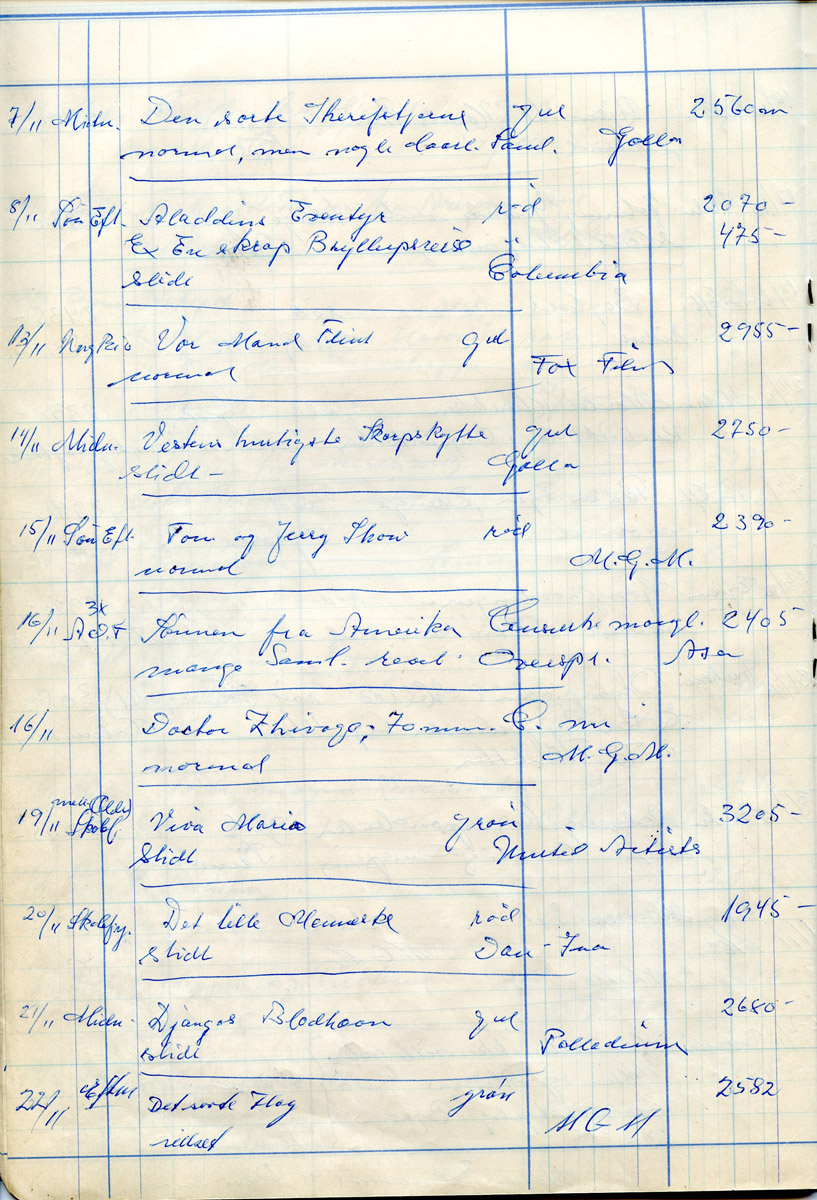 7/11 Midn. Den sorte Sheriffstjerne gul 2560 m
normal, men nogle daarl. Saml. Golla
8/11 Søn Eft. Aladdins Eventyr rød 2070 -
Ex En skrap Bryllupsreise " 475 -
slidt Columbia
13/11 Vor Mand Flint gul 2955 -
normal Fox Film
14/11 Midn. Vestens hurtigste Skarpskytte gul 2750 -
slidt - Golla
15/11 Søn Eft. Tom og Jerry Show rød 2390 -
normal M.G.M.
3x
16/11 Sønnen fra Amerika Censurk. mangl. 2405
mange Saml. Overspr. Asa
16/11 Doctor Zhivago; 70 mm. C. nu
normal M.G.M.
19/11 Viva Maria grøn 3205 -
slidt United Artists
20/11 Skolefrg. Det lille Menneske rød 1945 -
slidt Dan-Ina
21/11 Midn. Djangos Blodhævn gul 2680 -
slidt Palladium
22/11 Eftm Det sorte Flag grøn 2582
MGM